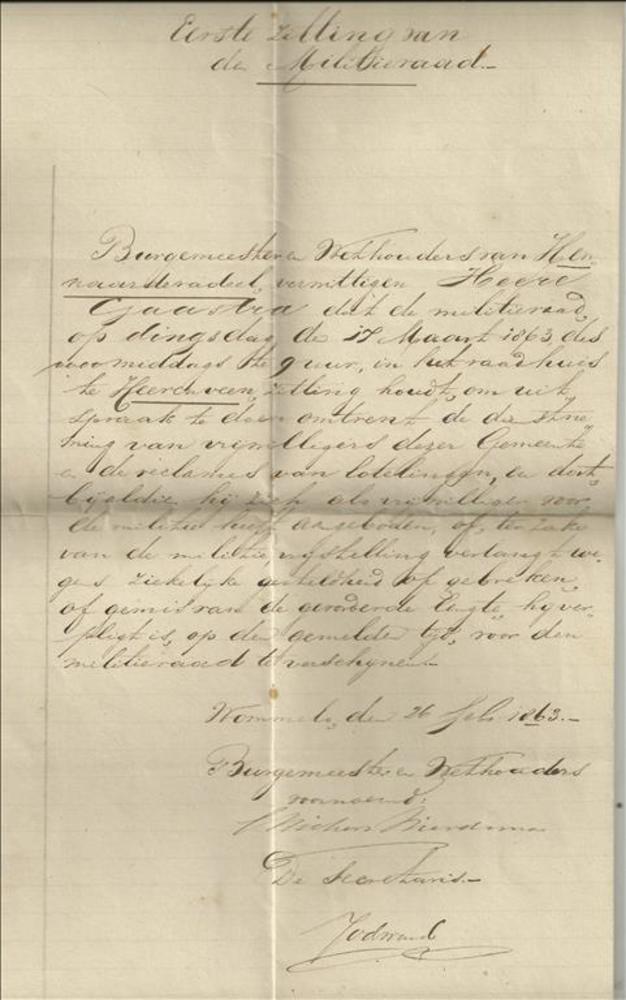 Eerste zitting van
den Militieraad.-
Burgemeester en Wethouders van Hen-
naarderadeel, verwittigen Heere
Gaastra dat de militieraad,
op dingsdag de 17 Maart 1863, des
voormiddags te 9 uur, in het raadhuis
te Heerenveen, zitting houdt, om uit-
spraak te doen omtrent de
van vrijwilligers dezer Gemeente
en de reclames van lotelingen, en dat,
bijaldien hij zich als vrijwilliger voor
de militie heeft aangeboden, of, ter zake
van de militie vrijstelling verlangt we-
gens ziekelijke gesteldheid of gebreken,
of gemis van de gevorderde lengte, hij ver-
pligt is, op den gemelden tijd, voor den
militieraad te verschijnen.-
Wommels, den 26 Feb. 1863.-
Burgemeester en Wethouders
voornoemd:
De Secretaris.-